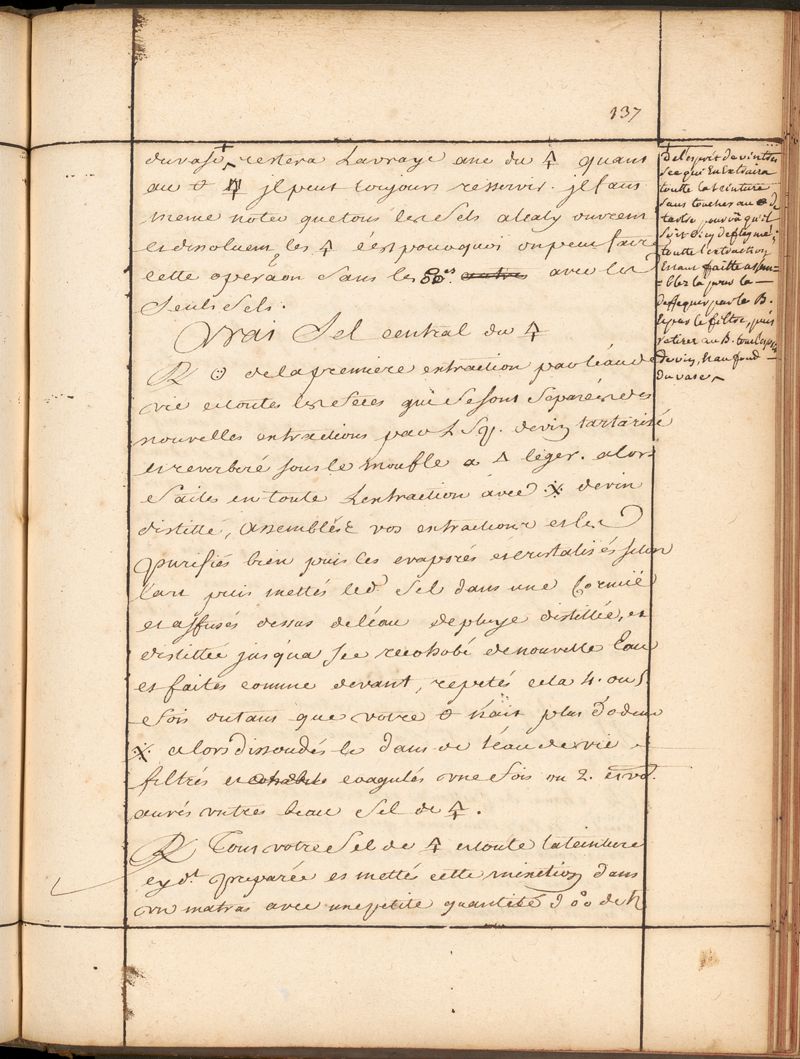 137
du vase, restera la vraye ame du 🜍 quant
au 🜔 ♆ jl peut toujours resservir. jl faut
meme noter que tous les sels alcaly ouvrent
et dissoluent les 🜍 c'est pourquoi on peut faire
cette operaôn sans les avec les
seuls sels.
Vrai Sel central du 🜍
℞ ☉ de la premiere extraction par l'eau de
vie et toutes les feces qui se sont separées des
nouvelles extractions par L'Sp. de vin tartarisé
et reverberé sous le moufle a 🜂 leger. alors
faites en toute L'extraction avec ⁜ de vin
distillé, assemblés vos extractions et les
purifiés bien puis les evaporés et cristalisés selon
l'art puis mettés led. sel dans une Cornuë
et affusés dessus de l'eau de pluye distillée, et
distillée jusqu'a sec recohobé de nouvelle Eau
et faites comme devant, repetés cela 4. ou 5.
fois ou tant que votre 🜔 n'ait plus d'odeur
⁜ alors dissoudés le dans de l'eau de vie
filtrés et coagulés une fois ou 2. et vo.
aurés votre beau Sel de 🜍.
℞ Tout votre Sel de 🜍 et toute la teinture
cy dt. preparée et mettés cette mixtion dans
un matras avec une petite quantité d' de ♄
De l'esprit de vin tres
sec qui En Extraira
toutte la teinture
sans toucher au 🜔 de
tartre, pourvû qu'il
soit bien deflegmé;
toutte l'extraction
Etant faitte assem-
-blez la pour la
deffequer par le B.
le par le filtre, puis
retirer au B. tout l'esprit
de vin, & au fond
du vase,